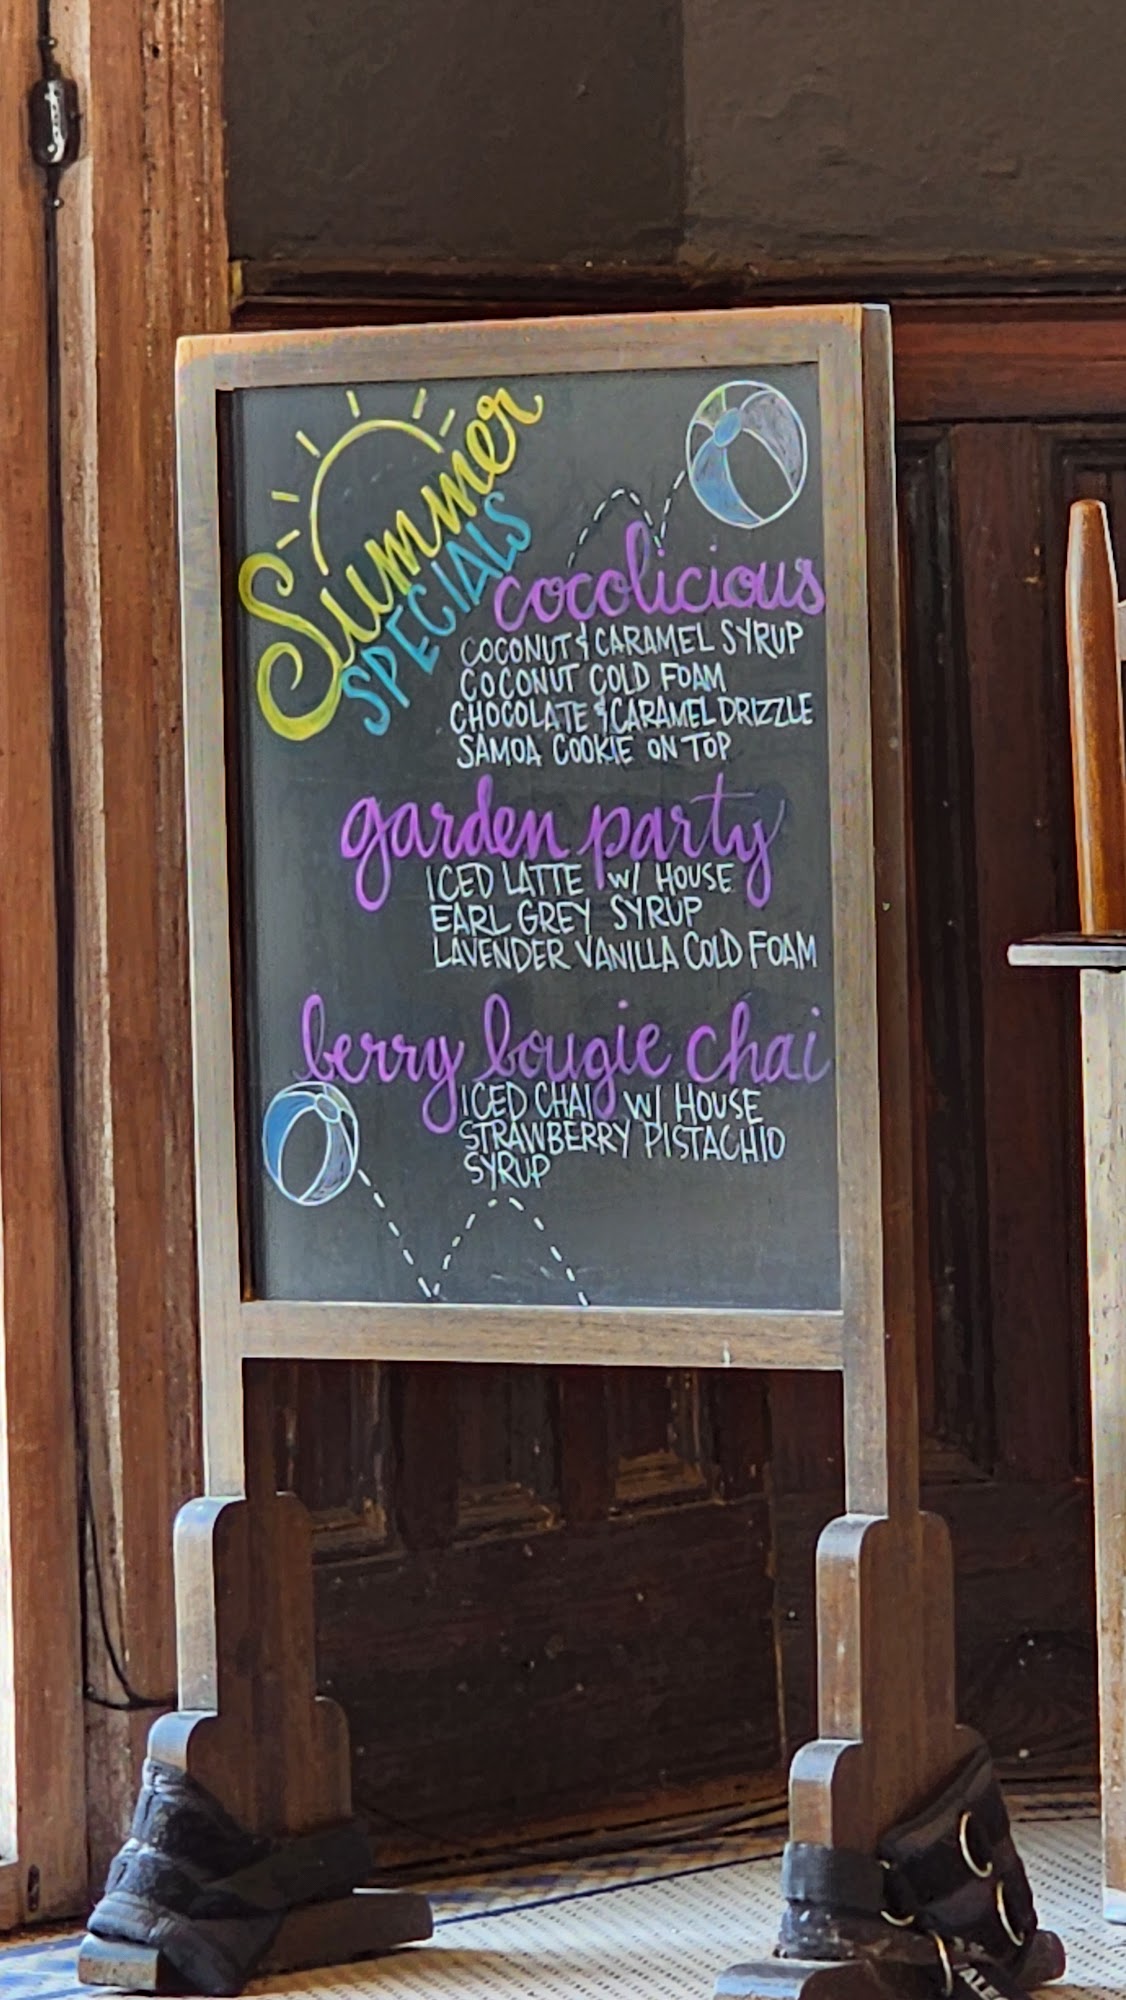 Summer
SPECIALS
cocolicious
COCONUT & CARAMEL SYRUP
COCONUT COLD FOAM
CHOCOLATE & CARAMEL DRIZZLE
SAMOA COOKIE ON TOP
garden party
ICED LATTE W/ HOUSE
EARL GREY SYRUP
LAVENDER VANILLA COLD FOAM
berry bougie chai
ICED CHAI W/ HOUSE
STRAWBERRY PISTACHIO
SYRUP